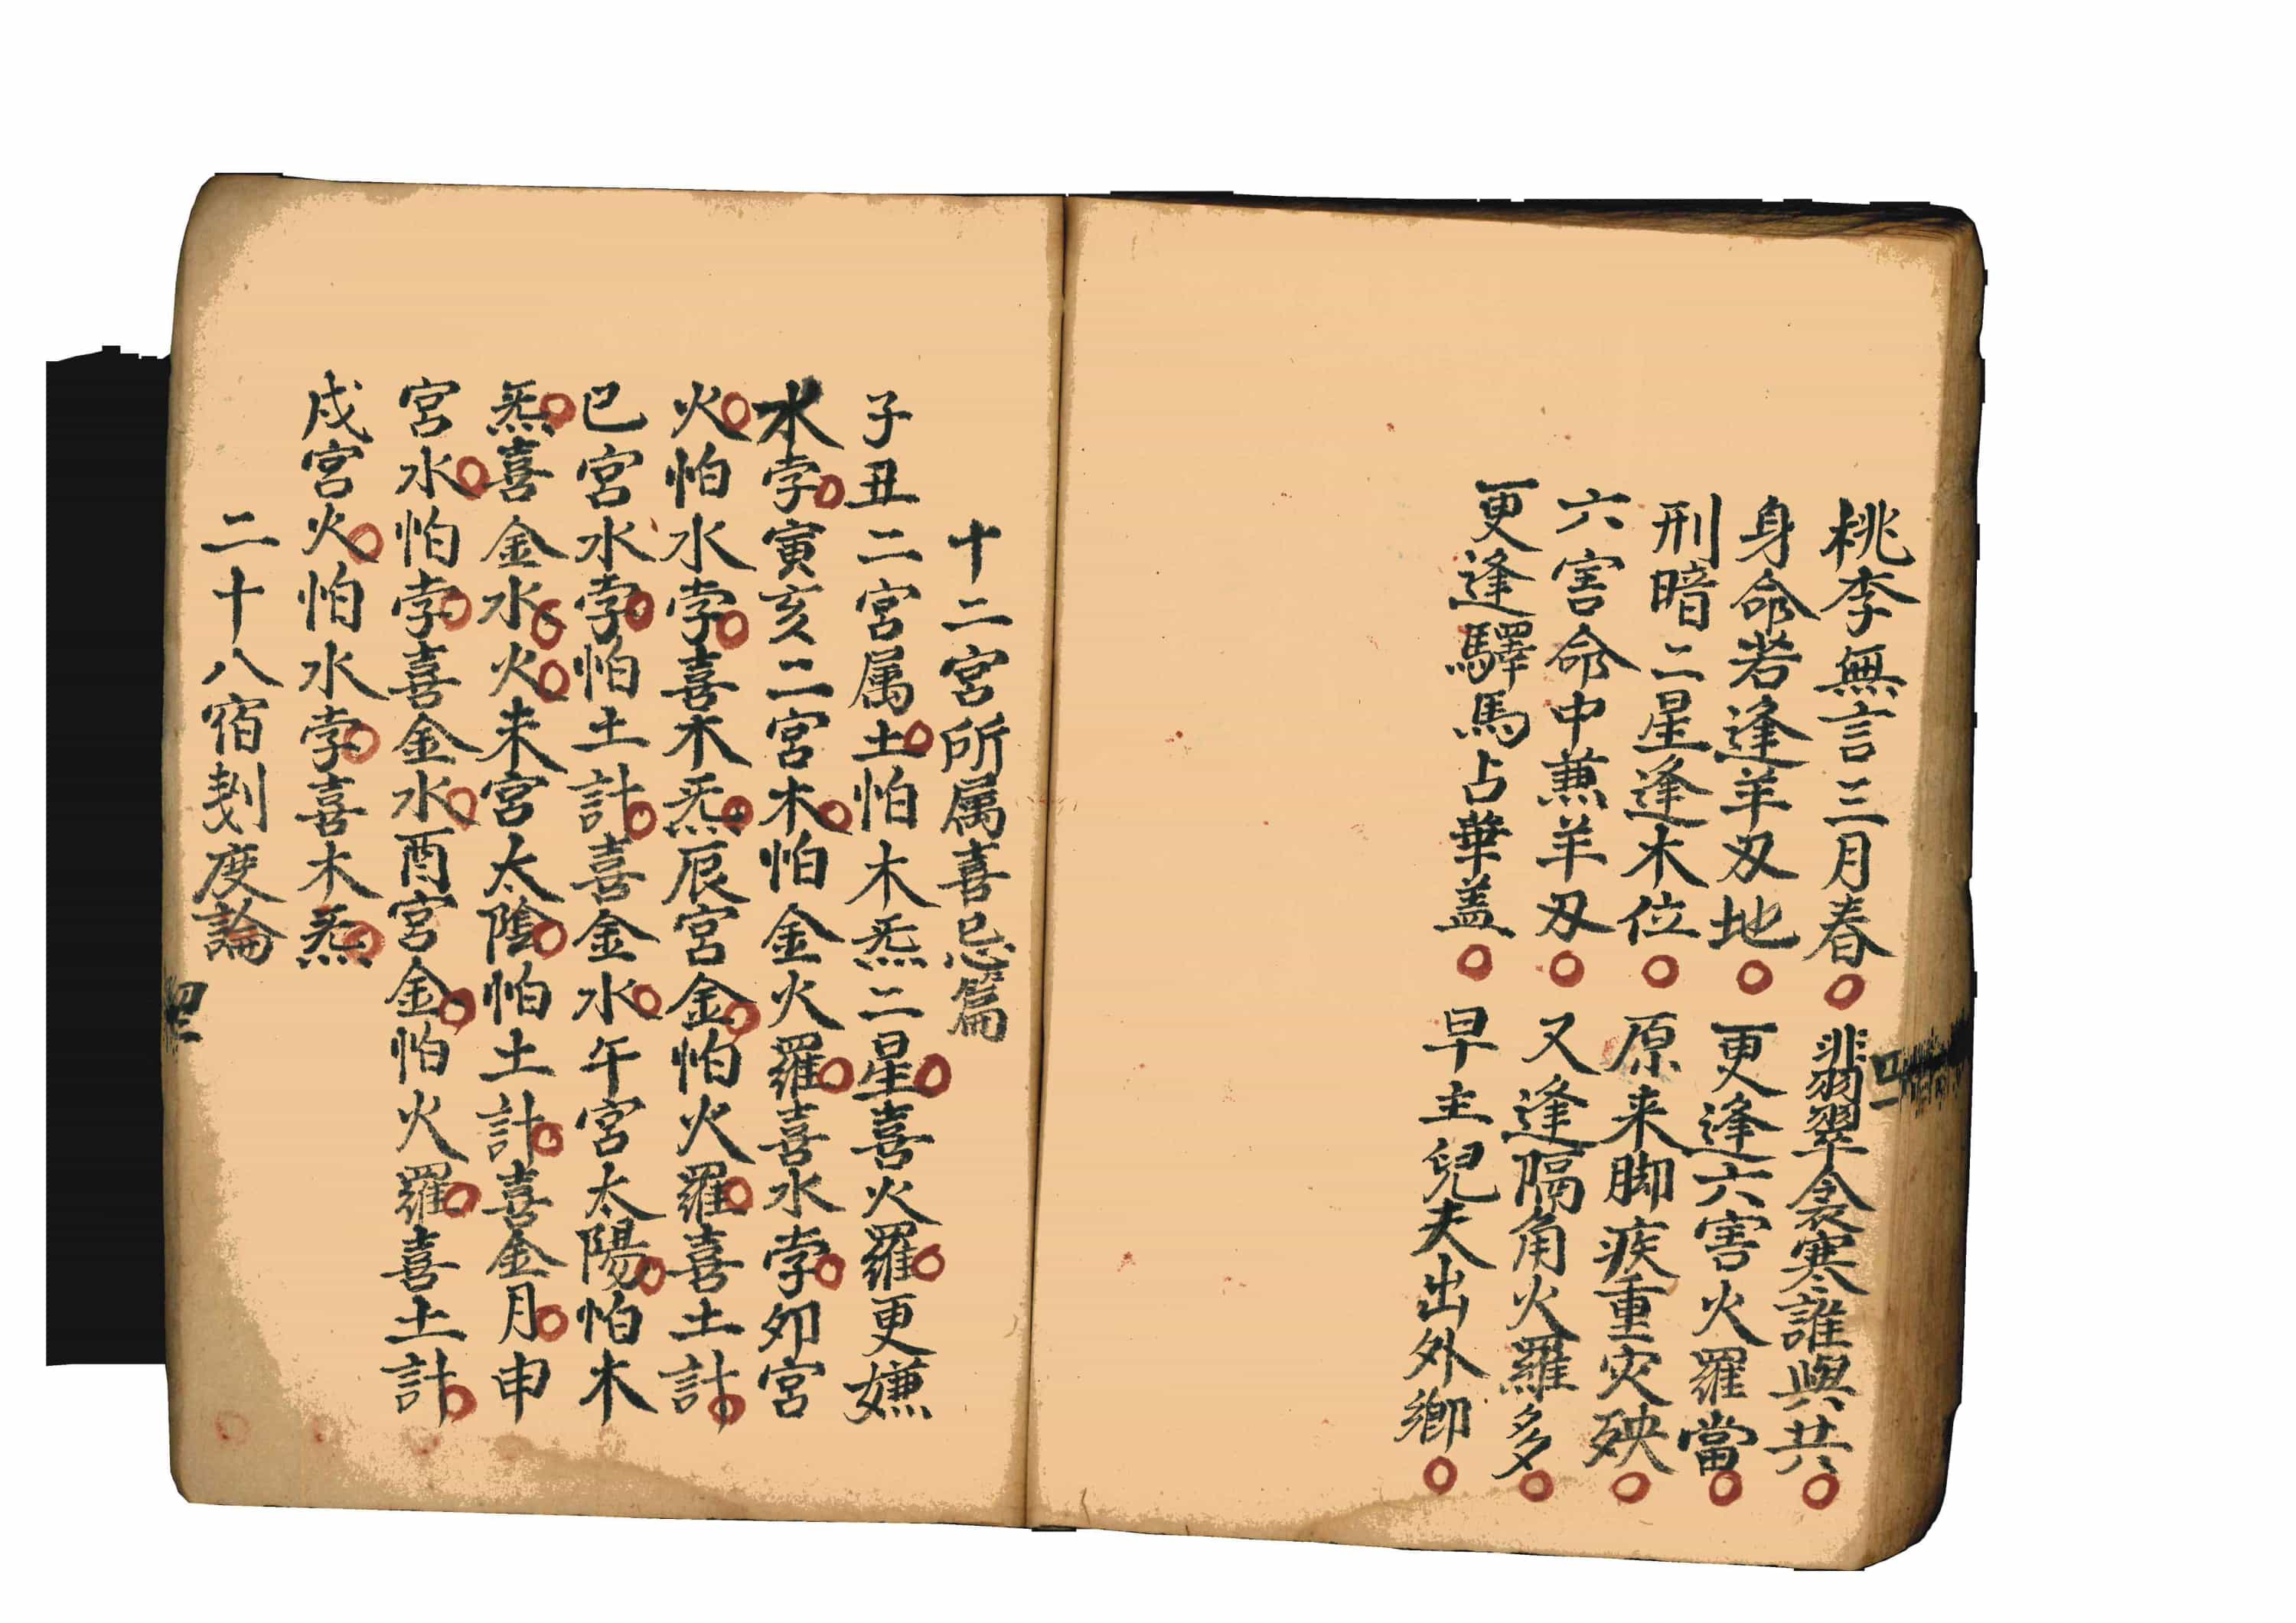 桃李無言三月春○翡翠衾寒誰與共○
身命若逢羊刃地○更逢六害火羅當○
刑暗二星逢木位○原来脚疾重灾殃○
六害命中兼羊刃○又逢隔角火羅多○
更逢驛馬占華盖○早主兒夫出外鄉○
十二宮所属喜忌篇
子丑二宮属土○怕木炁二星○喜火羅○更嫌
水孛○寅亥二宮木○怕金火羅○喜水孛○卯宮
火○怕水孛○喜木炁○辰宮金○怕火羅○喜土計○
巳宮水孛○怕土計○喜金水○午宮太陽○怕木
炁○喜金水○火○未宮太陰○怕土計○喜金月○申
宮水○怕孛○喜金水○酉宮金○怕火羅○喜土計○
戌宮火○怕水孛○喜木炁○
二十八宿刻度論